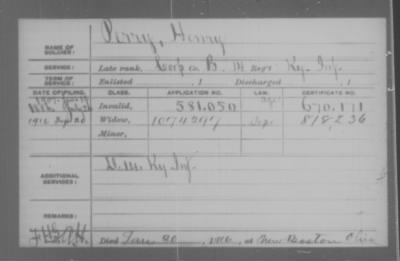 Perry, Henry
NAME OF SOLDIER:
SERVICE: Late rank, Corp Co. B, 14 Reg't Ky. Inf.
TERM OF SERVICE: Enlisted , 1 Discharged , 1
DATE OF FILING. CLASS. APPLICATION NO. LAW. CERTIFICATE NO.
Invalid, 581.050 670.171
1916 Widow, 1074297 818236
Minor,
ADDITIONAL SERVICES: D. 14. Ky Inf.
REMARKS: Died Jan 20, 1916, at New Boston Ohio